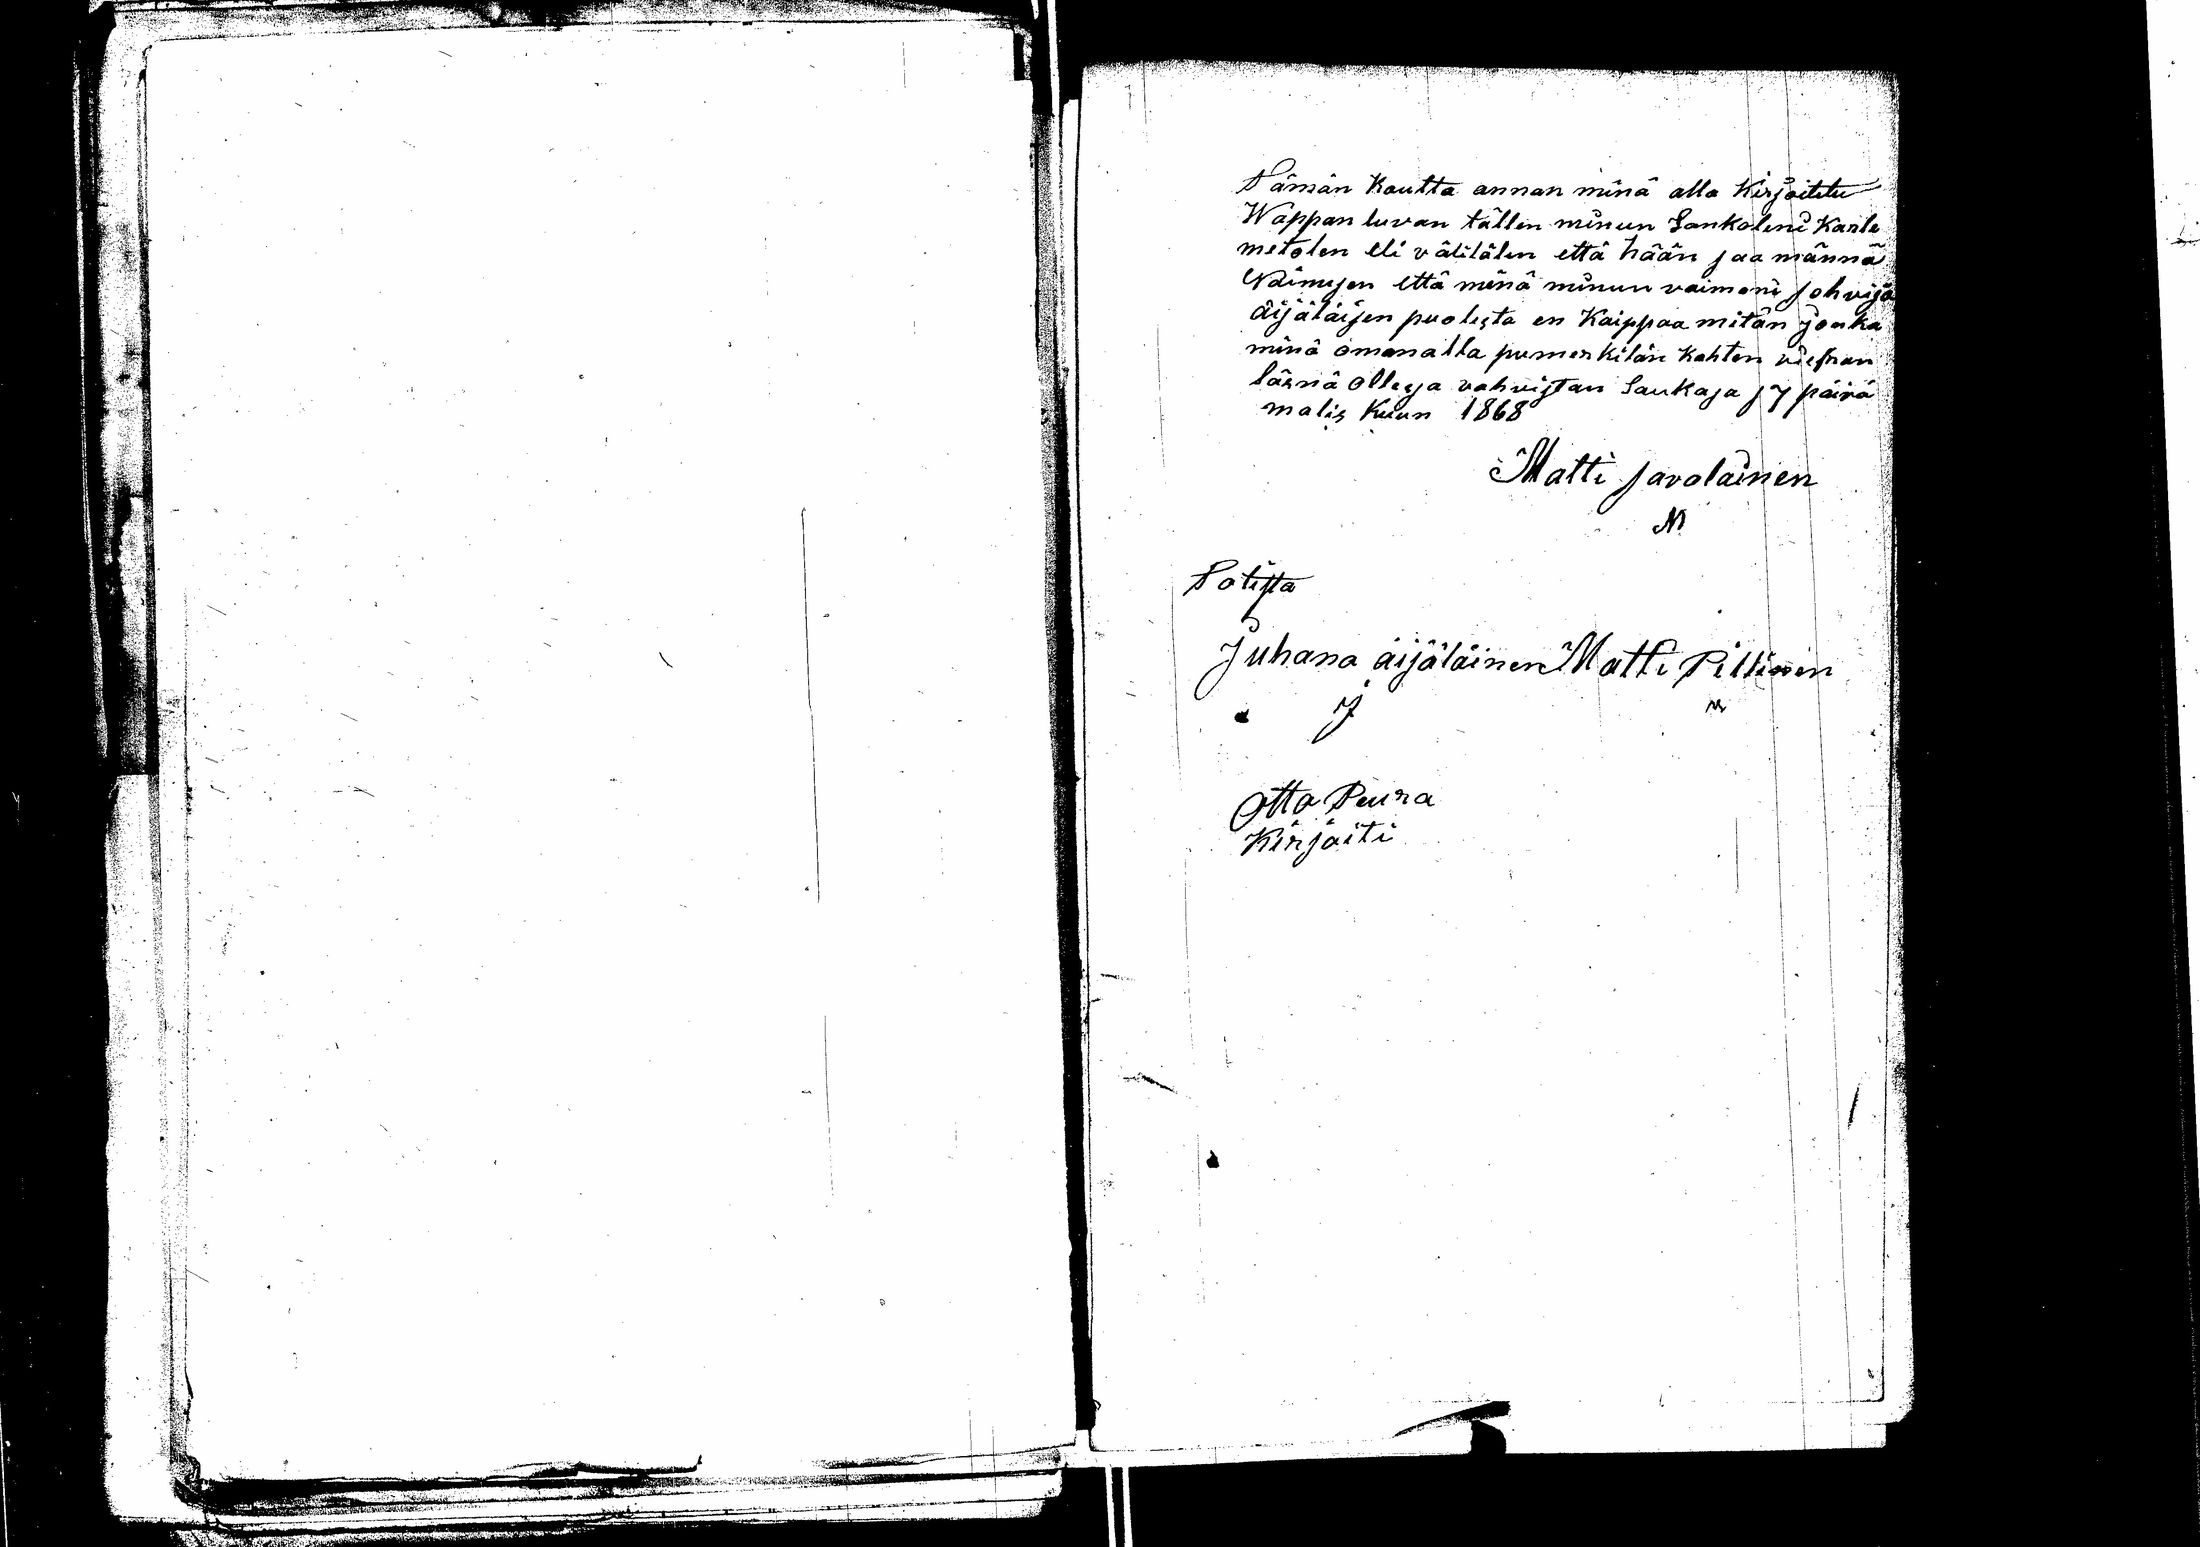 Tämän Kautta annan minä alla Kirjoitetu
Wappan luvan tällen minun Lankoleni Karle
metolen eli välilälen että hään saa männä
Naimisen että minä minun vaimoni sohvija
äijäläisen puolesta en Kaippaa mitän jonka
minä omanalla pumerkilän Kahten viesran
läsnä ollesa vahvistan Laukasa 17 päivä
malis Kuun 1868
Matti savolainen
M
Totista
Juhana äijäläinen Matti Pittinen
J M
Otto Peura
Kirjoiti